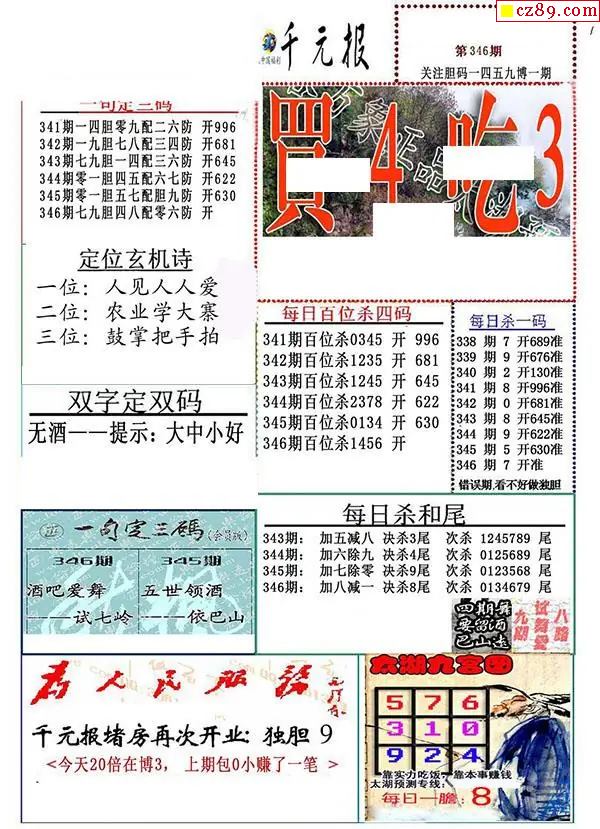 cz89.com
中国福利
千元报
第346期
关注胆码一四五九博一期
一句定三码
341期一四胆零九配二六防 开996
342期一九胆七八配三四防 开681
343期七九胆一四配三六防 开645
344期零一胆四五配六七防 开622
345期零一胆五七配胆九防 开630
346期七九胆四八配零六防 开
買4吃3
定位玄机诗
一位：人见人人爱
二位：农业学大寨
三位：鼓掌把手拍
每日百位杀四码
341期百位杀0345 开 996
342期百位杀1235 开 681
343期百位杀1245 开 645
344期百位杀2378 开 622
345期百位杀0134 开 630
346期百位杀1456 开
每日杀一码
338 期 7 开689准
339 期 9 开676准
340 期 2 开130准
341 期 8 开996准
342 期 0 开681准
343 期 8 开645准
344 期 9 开622准
345 期 5 开630准
346 期 7 开准
错误期,看不好做独胆
双字定双码
无酒——提示：大中小好
一句定三碼(会员版)
346期
酒吧爱舞
——试七岭
345期
五世领酒
——依巴山
每日杀和尾
343期： 加五减八 决杀3尾 次杀 1245789 尾
344期： 加六除九 决杀4尾 次杀 0125689 尾
345期： 加七除零 决杀9尾 次杀 0123568 尾
346期： 加八减一 决杀8尾 次杀 0134679 尾
四期舞
要留酒
巴山连
九湖
试舞爱
八路
为人民服务
千元报堵房再次开业：独胆 9
<今天20倍在博3， 上期包0小赚了一笔 >
太湖九宫图
5 7 6
3 1 0
9 2 4
靠实力吃饭，靠本事赚钱
太湖预测专线：
每日一膽：8